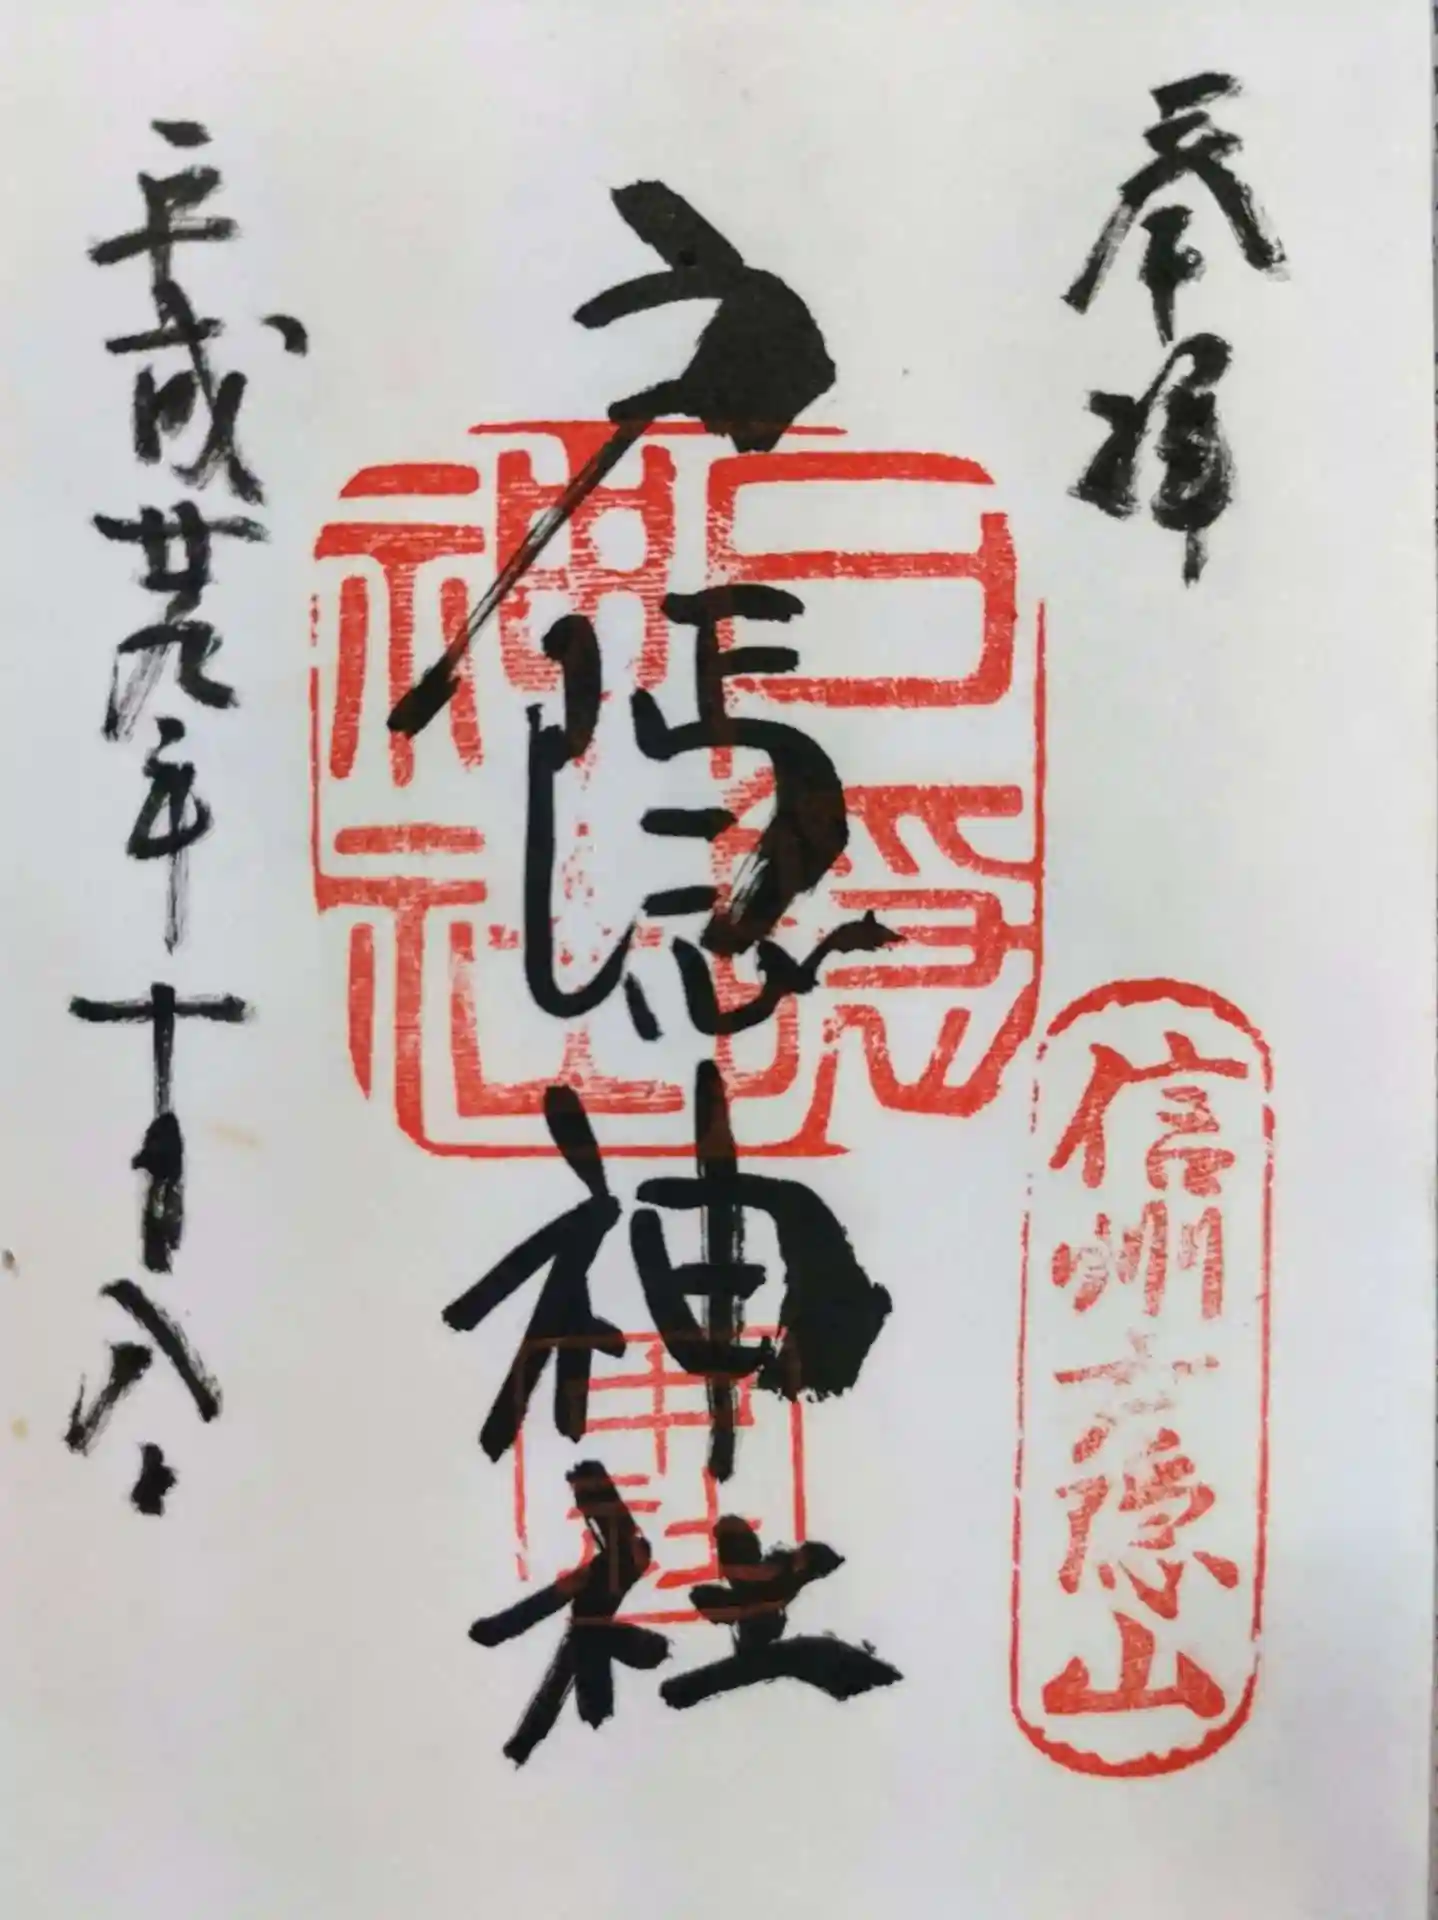 奉拝
信州戸隠山
戸隠神社
戸隠神社
中社
平成廿九年十月八日